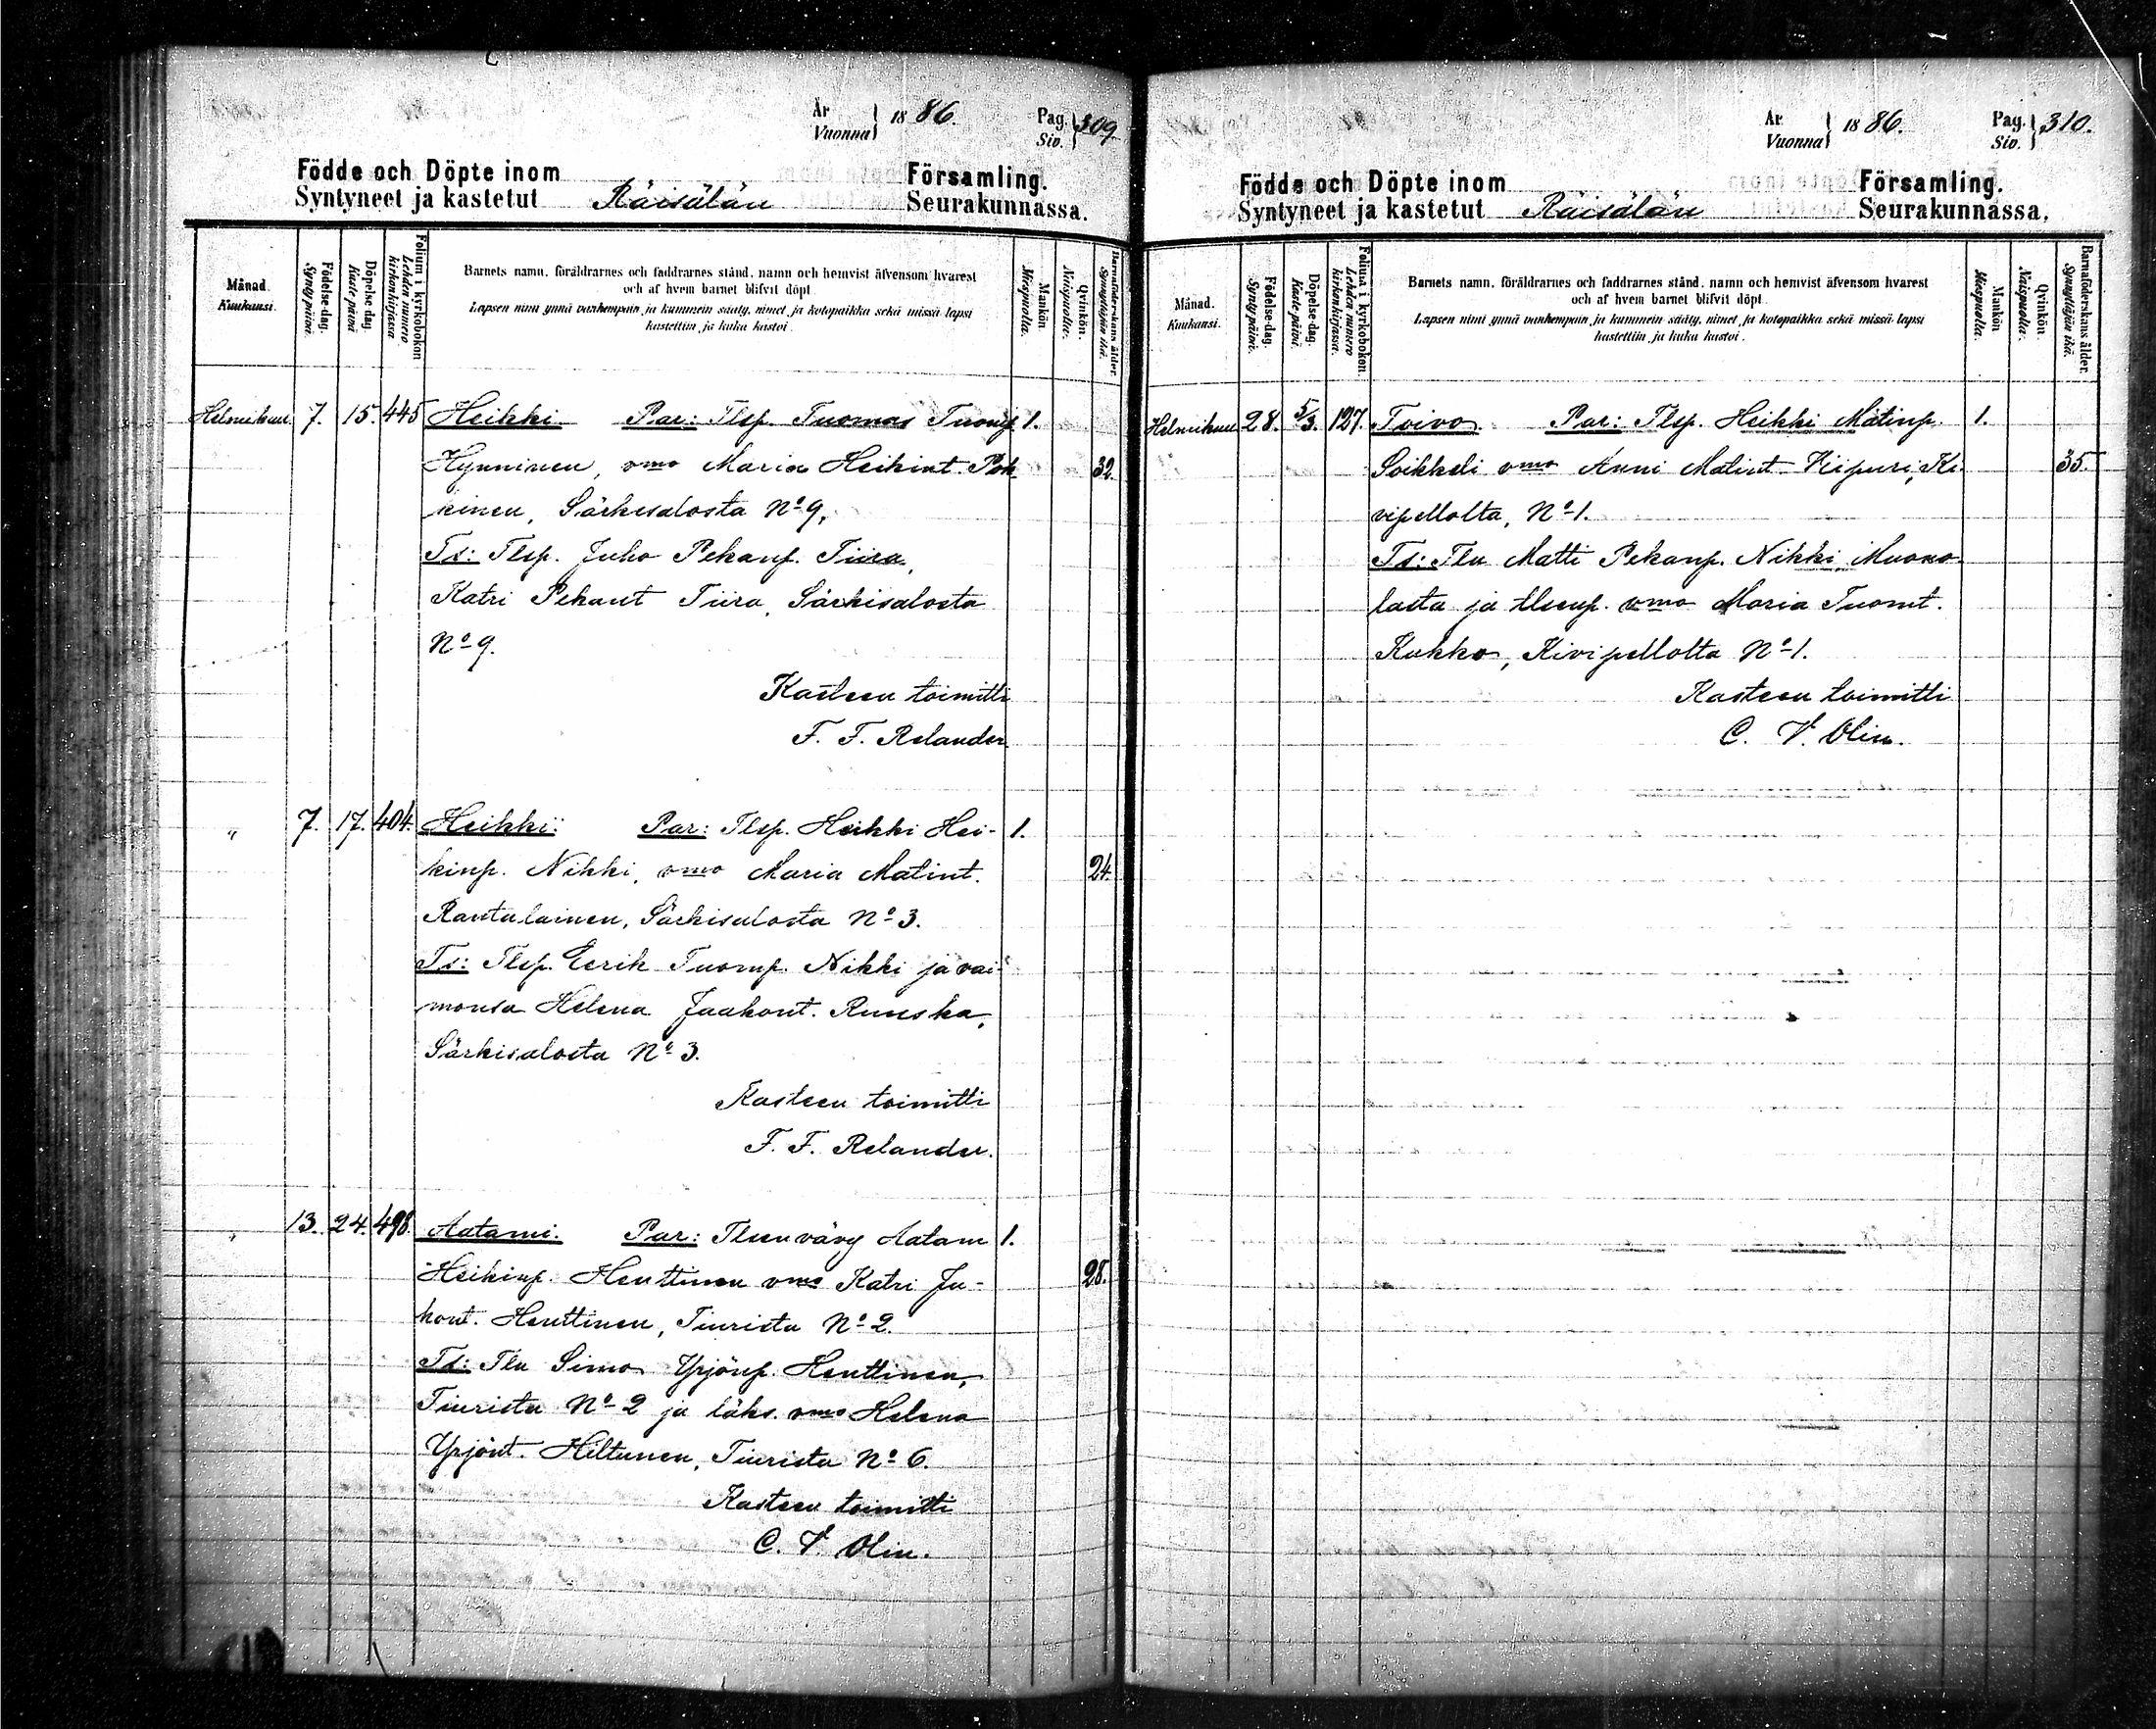 År
Vuonna } 1886.
Pag.
Siv. } 309
Födde och Döpte inom
Församling.
Syntyneet ja kastetut Räisälän Seurakunnassa.
Månad.
Kuukausi.
Födelse-dag.
Syntypäivä.
Döpelse-dag.
Kaste-päivä
Folium i kyrkobokon
Lehden numero
kirkonkirjassa
Barnets namn, föräldrarnes och faddrarnes stånd, namn och hemvist äfvensom hvarest
och af hvem barnet blifvit döpt.
Lapsen nimi ynnä vanhempain ja kummein sääty, nimet ja kotopaikka sekä missä lapsi
kastettiin ja kuka kastoi.
Mankön
Miespuolta.
Qvinkön.
Naispuolta.
Barnaföderskans ålder.
Synnyttäjän ikä.
Helmikuu 7. 15. 445 Heikki Par: Tlsp. Tuomas Tuomp. 1.
Hynninen, vmo Maria Heikint. Pök 32.
kinen, Särkisalosta No 9,
Ts: Tlsp. Juho Pekanp. Tiira,
Katri Pekant Tiira, Särkisalosta
No 9.
Kasteen toimitti
F. F. Relander
" 7. 17. 404. Heikki. Par: Tlsp. Heikki Hei- 1.
kinp. Nikki, vmo Maria Matint. 24.
Rantalainen, Särkisalosta No 3.
Ts: Tlsp. Eerik Tuomp. Nikki ja vai-
monsa Helena Jaakont. Ruuska,
Särkisalosta No 3.
Kasteen toimitti
F. F. Relander.
" 13. 24. 498. Aatami. Par: Tlsenvävy Aatam 1.
Heikinp. Henttinen vmo Katri Ju- 28.
hont. Henttinen, Tiurista No 2.
Ts: Tln Simo Yrjönp. Henttinen,
Tiurista No 2 ja läks. vmo Helena
Yrjönt. Hiltunen, Tiurista No 6.
Kasteen toimitti
C. V. Olin.
År
Vuonna } 1886.
Pag.
Siv. } 310.
Födde och Döpte inom
Församling.
Syntyneet ja kastetut Räisälän Seurakunnassa.
Månad.
Kuukausi.
Födelse-dag.
Syntypäivä.
Döpelse-dag.
Kaste-päivä.
Folium i kyrkobokon.
Lehden numero
kirkonkirjassa.
Barnets namn, föräldrarnes och faddrarnes stånd, namn och hemvist äfvensom hvarest
och af hvem barnet blifvit döpt.
Lapsen nimi ynnä vanhempain ja kummein sääty, nimet ja kotopaikka sekä missä lapsi
kastettiin ja kuka kastoi.
Mankön
Miespuolta.
Qvinkön.
Naispuolta.
Barnaföderskans ålder.
Synnyttäjän ikä.
Helmikuu 28. 5/3. 127. Toivo. Par: Tlsp. Heikki Matinp. 1.
Soikkeli vmo Anni Matint Viipuri, Ki 35.
vipellolta, No 1.
Ts: Tln Matti Pekanp. Nikki Muono
lasta ja tlsenp. vmo Maria Tuomt.
Kukko, Kivipellolta No 1.
Kasteen toimitti
C. V. Olin.